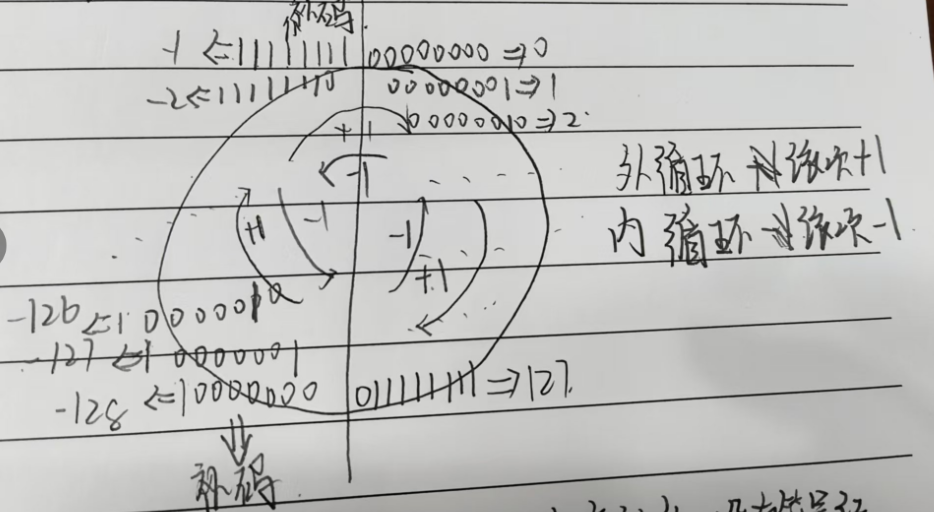 补码
-1 <= 11111111 00000000 => 0
-2 <= 11111110 00000001 => 1
00000010 => 2
+1
-1
外循环 依次+1
+1 -1 -1
内循环 依次-1
+1
-126 <= 10000010
-127 <= 10000001
-128 <= 10000000 01111111 => 127
补码